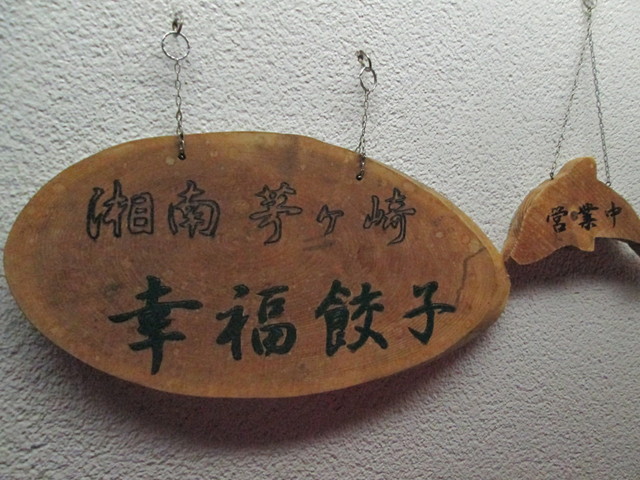 湘南 茅ヶ崎
幸福餃子
営業中